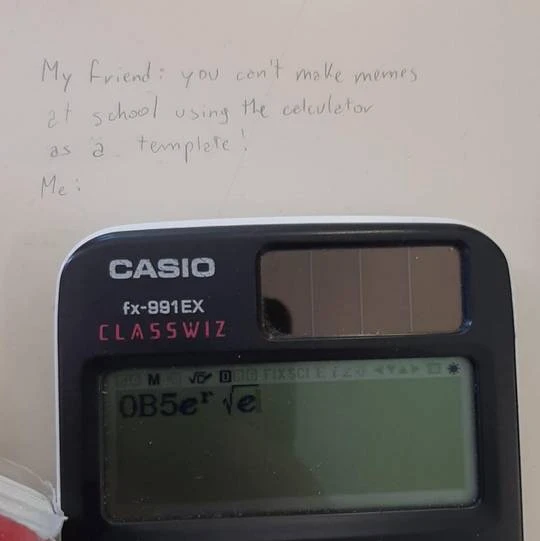 My friend: you can't make memes
at school using the calculator
as a template!
Me:
CASIO
fx-991EX
CLASSWIZ
M √▱ D FIX SCI E i ∠
OB5eʳ √e